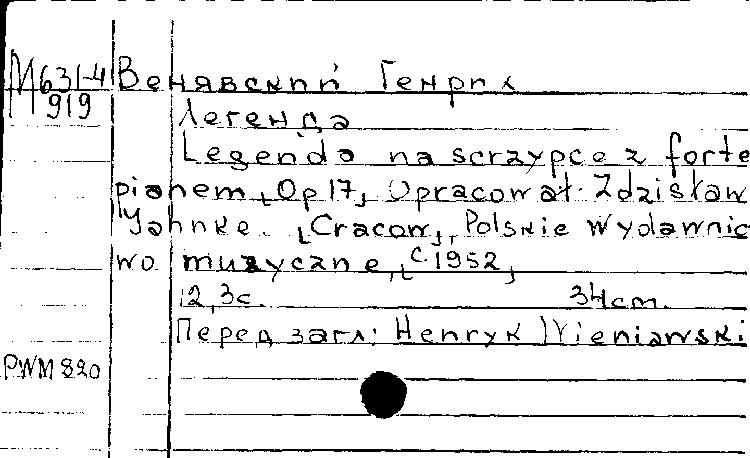 М631-4 Венявский Генрих
919
Легенда
Legenda na scrzypce z forte
pianem, [Op 17], Opracował. Zdzisław
Yahnke. [Cracow], Polskie Wydawnic
wo muzyczne, [c.1952]
12, 3с. 34cm.
Перед загл: Henryk Wieniawski
PWM 820